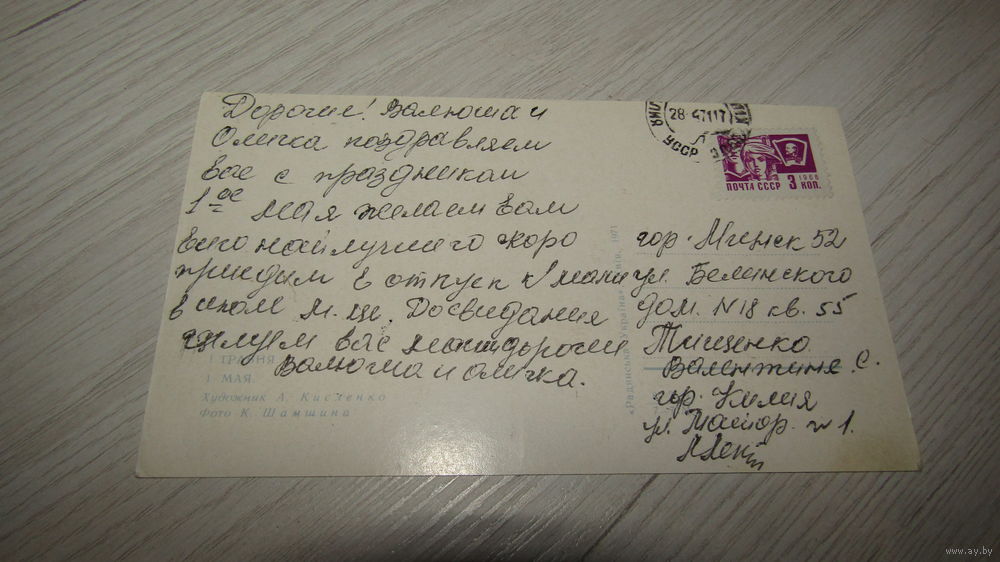 Дорогие! Валюша и
Оличка поздравляем
Вас с праздником
1-ое Мая желаем Вам
Всего найлучшего скоро
приедим в отпуск к мами
в июом м-це. Досвидания
цылуем вас наши дорогии
Валюша и оличка.
1 ТРАВНЯ
1 МАЯ.
Художник А. Кисленко
Фото К. Шамшина
«Радянська Україна» Київ, 1971
КИЛИЯ
28-47117
УССР
ПОЧТА СССР 3 КОП.
1966
гор. Минск 52
ул. Белинского
дом. N18 кв. 55
Тищенко
Валентине С.
гор. Килия
ул. Майор. N 1.
www.ay.by